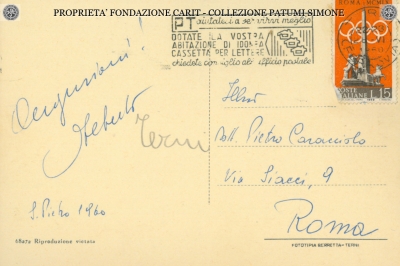 PROPRIETA' FONDAZIONE CARIT - COLLEZIONE PATUMI SIMONE
PT aiutateci a servirvi meglio
DOTATE LA VOSTRA
ABITAZIONE DI IDONEA
CASSETTA PER LETTERE
chiedete consiglio all'ufficio postale
ROMA MCMLX
POSTE ITALIANE L.15
Auguroni!
Alberto
Terni
S. Pietro 1960
Ill.mo
Dott. Pietro Caracciolo
Via Siacci, 9
Roma
68472 Riproduzione vietata
FOTOTIPIA BERRETTA - TERNI